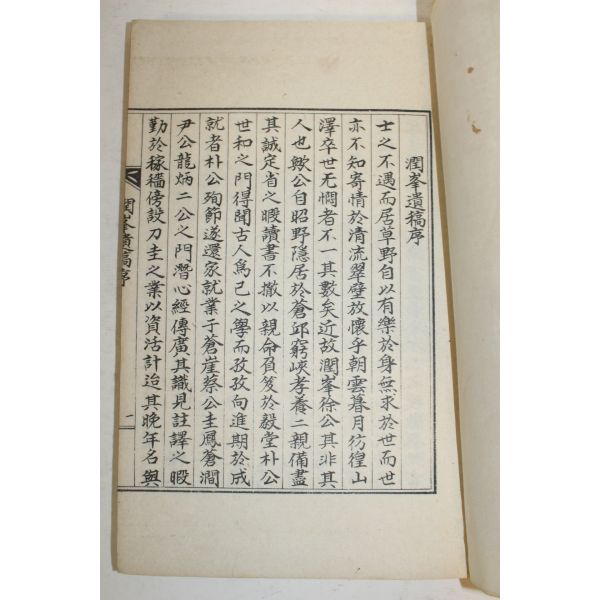 潤峯遺稿序
士之不遇而居草野自以有樂於身無求於世而世
亦不知寄情於清流翠壁放懷乎朝雲暮月彷徨山
澤卒世无憫者不一其數矣近故潤峯徐公其非其
人也歟公自昭野隱居於蒼邱窮峽孝養二親備盡
其誠定省之暇讀書不撤以親命負笈於毅堂朴公
世和之門得聞古人爲己之學而孜孜向進期於成
就者朴公殉節遂還家就業于蒼崖蔡公圭鳳蒼澗
尹公龍炳二公之門潛心經傳廣其識見註譯之暇
勤於稼穡傍設刀圭之業以資活計迨其晚年名與
潤峯遺稿序
一